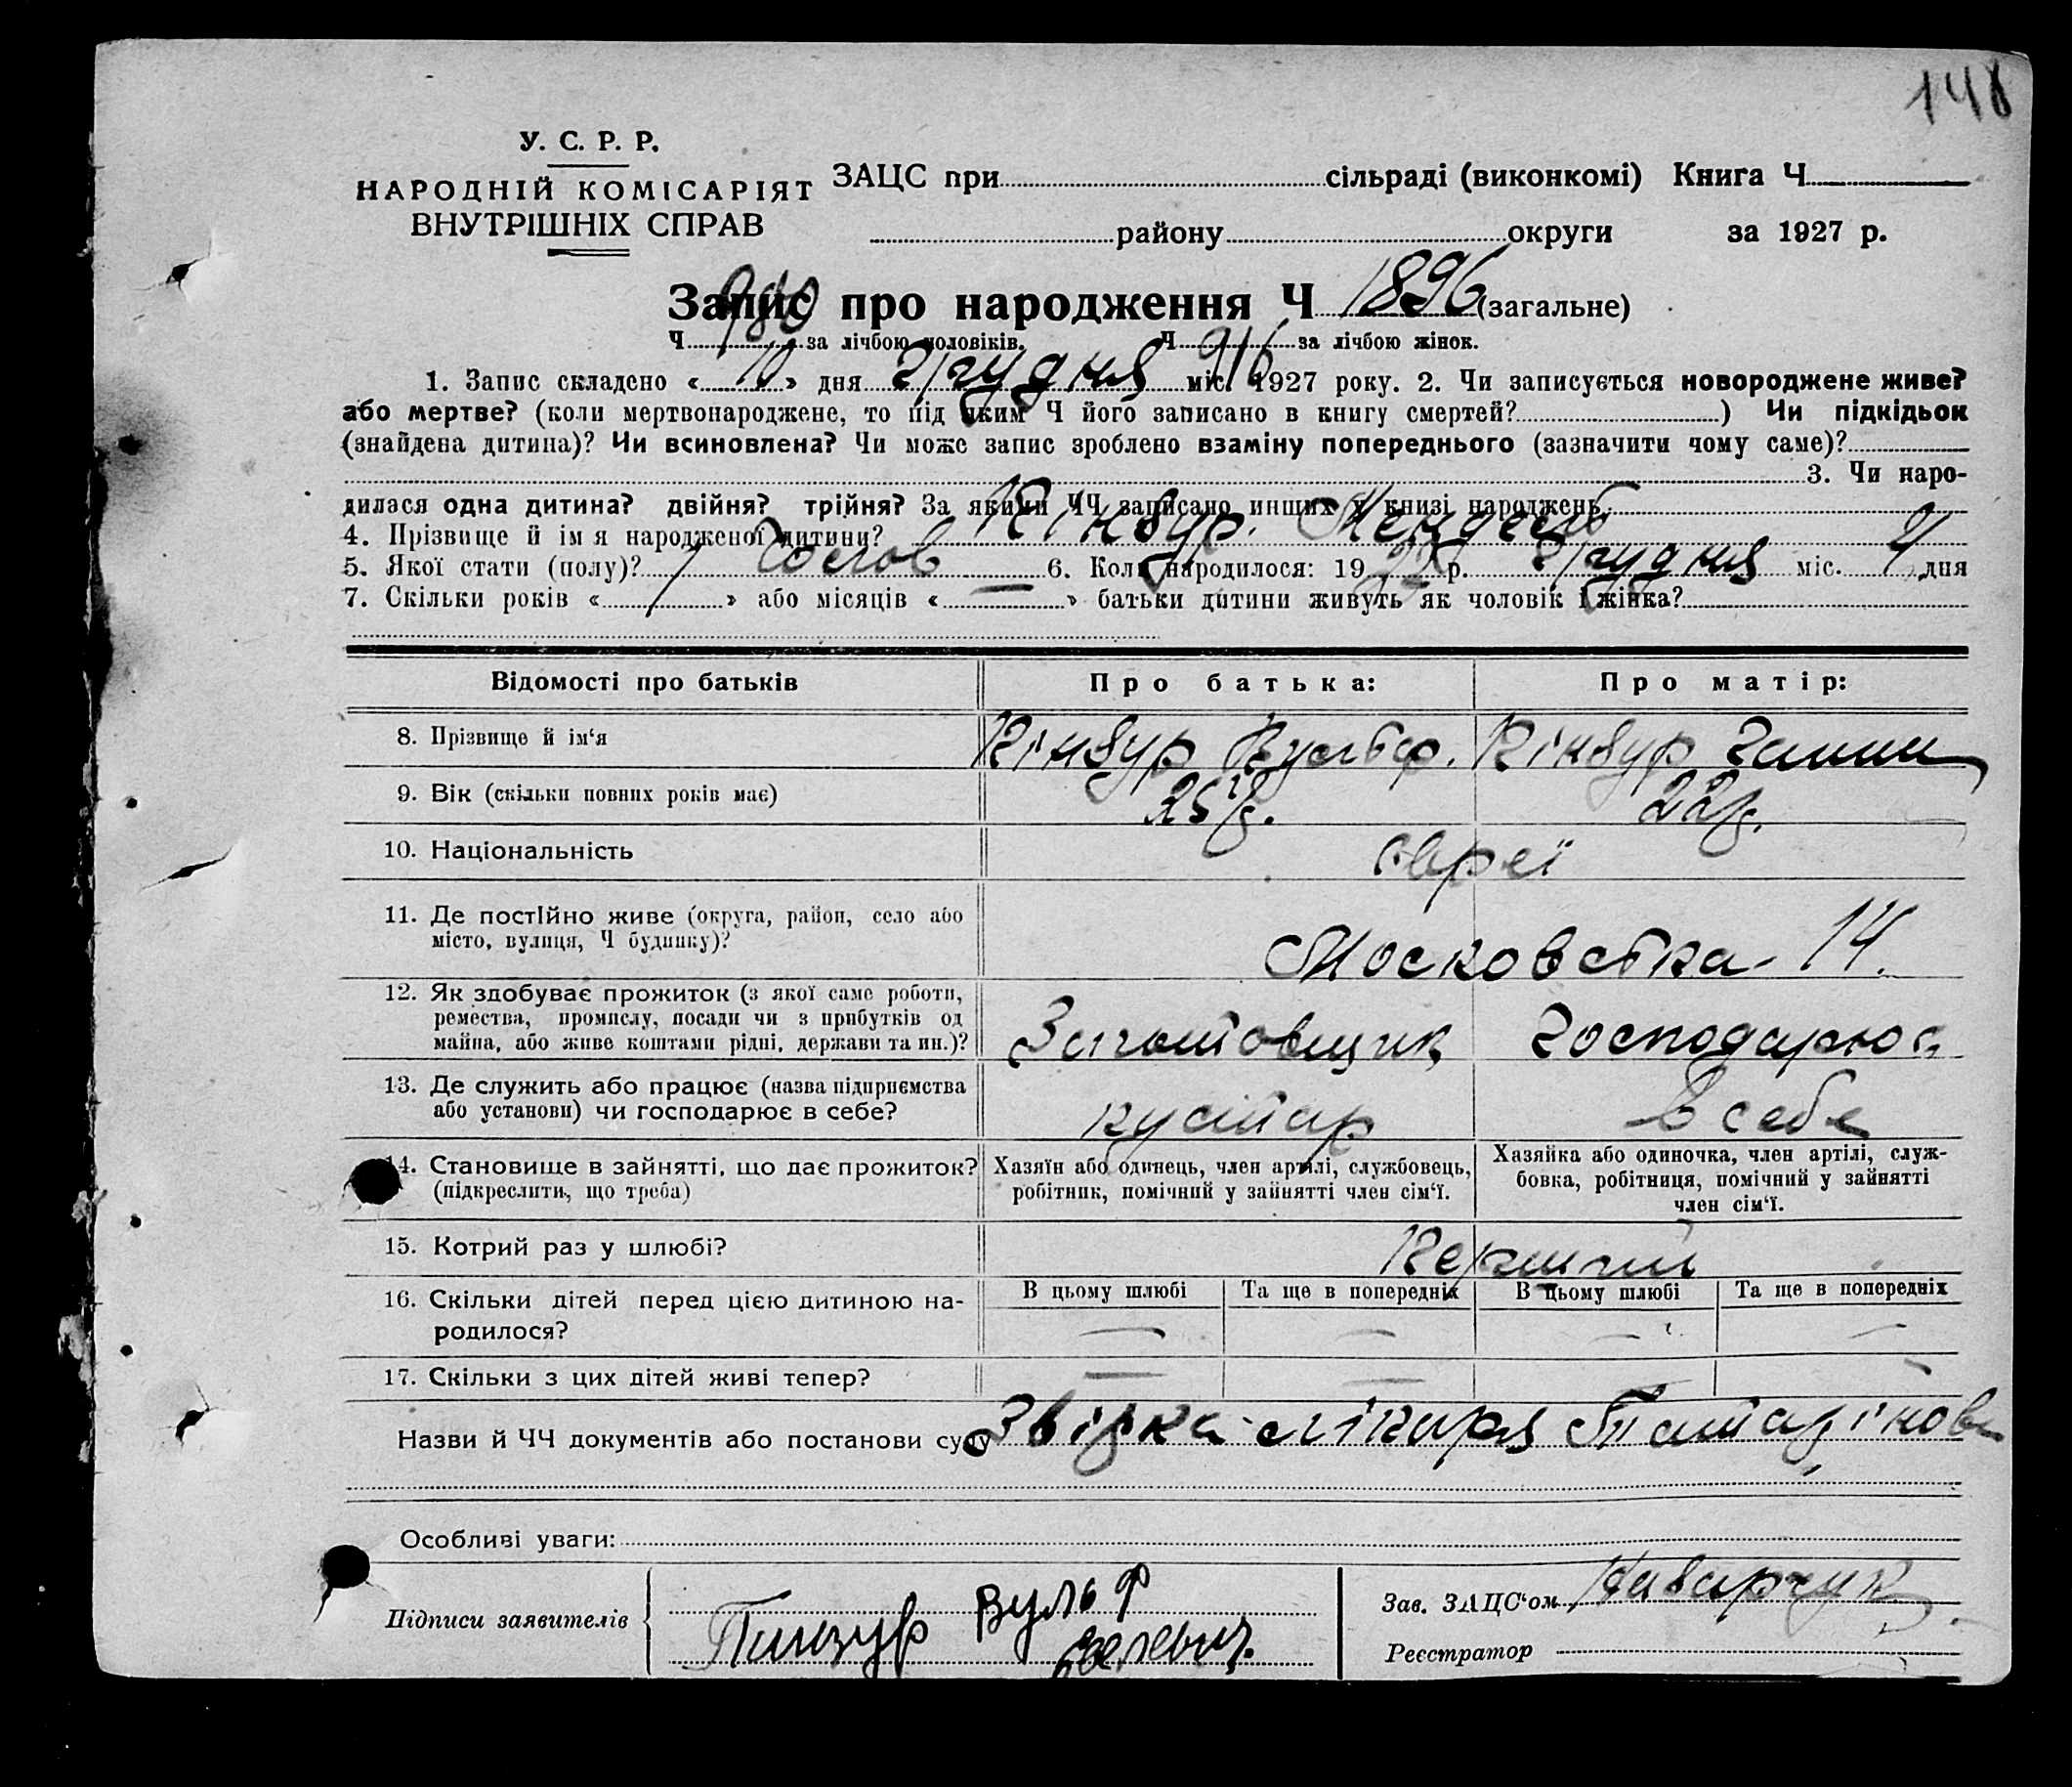 148
У. С. Р. Р.
НАРОДНІЙ КОМІСАРІЯТ
ВНУТРІШНІХ СПРАВ
ЗАЦС при сільраді (виконкомі) Книга Ч
району округи за 1927 р.
Запис про народження Ч 1896 (загальне)
Ч 980 за лічбою чоловіків. Ч 916 за лічбою жінок.
1. Запис складено « 10 » дня Грудня міс. 1927 року. 2. Чи записується новороджене живе?
або мертве? (коли мертвонароджене, то під яким Ч його записано в книгу смертей? ) Чи підкідьок
(знайдена дитина)? Чи всиновлена? Чи може запис зроблено взаміну попереднього (зазначити чому саме)?
3. Чи наро-
дилася одна дитина? двійня? трійня? За якими ЧЧ записано инших у книзі народжень
4. Прізвище й імя народженої дитини? Пінзур Мендель
5. Якої стати (полу)? Чолов 6. Коли народилося: 19 р. Грудня міс. 4 дня
7. Скільки років « 1 » або місяців « — » батьки дитини живуть як чоловік і жінка?
Відомості про батьків Про батька: Про матір:
8. Прізвище й ім‘я Пінзур Вульф. Пінзур
9. Вік (скільки повних років має) 25 р. 22 р.
10. Національність євреї
11. Де постійно живе (округа, район, село або
місто, вулиця, Ч будинку)?
Московська 14.
12. Як здобуває прожиток (з якої саме роботи,
ремества, промислу, посади чи з прибутків од
майна, або живе коштами рідні, держави та ин.)?
Заготовщик Господарює
13. Де служить або працює (назва підприємства
або установи) чи господарює в себе?
кустар В себе
14. Становище в зайнятті, що дає прожиток?
(підкреслити, що треба)
Хазяїн або одинець, член артілі, службовець,
робітник, помічний у зайнятті член сім‘ї.
Хазяйка або одиночка, член артілі, служ-
бовка, робітниця, помічний у зайнятті
член сім‘ї.
15. Котрий раз у шлюбі? Перший
16. Скільки дітей перед цією дитиною на-
родилося?
В цьому шлюбі Та ще в попередніх В цьому шлюбі Та ще в попередніх
— — — —
17. Скільки з цих дітей живі тепер? — —
Назви й ЧЧ документів або постанови суду Звідка лікаря
Особливі уваги:
Підписи заявителів
Пинзур Вульф
Зав. ЗАЦС‘ом
Реєстратор